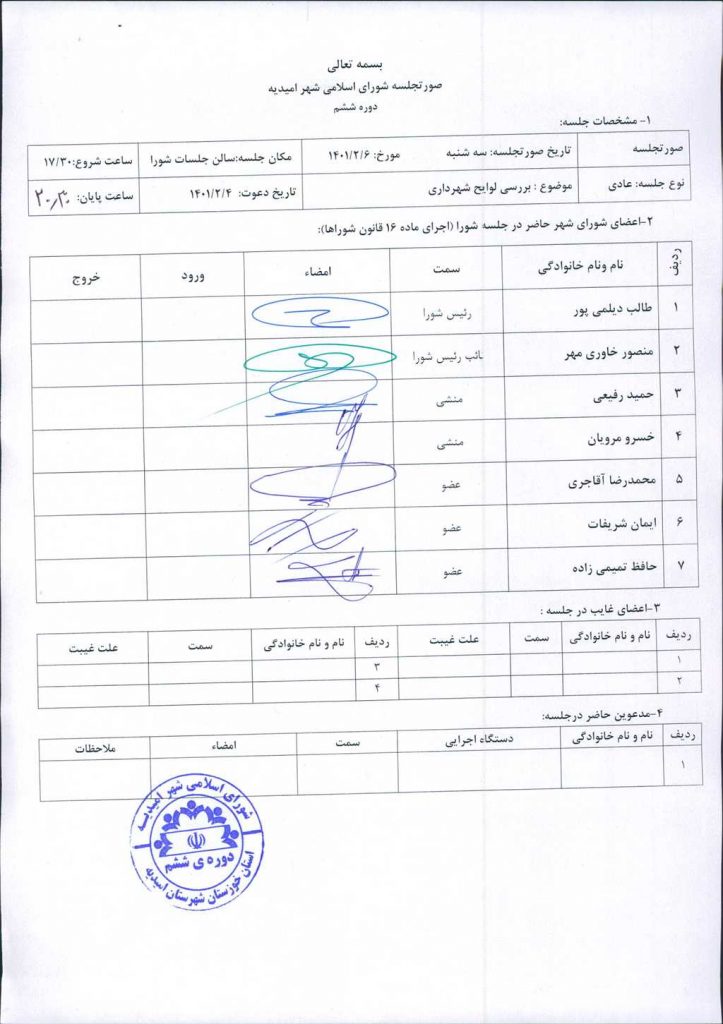 بسمه تعالی
صورتجلسه شورای اسلامی شهر امیدیه
دوره ششم
۱- مشخصات جلسه:
صورتجلسه تاریخ صورتجلسه: سه شنبه مورخ: ۱۴۰۱/۲/۶ مکان جلسه:سالن جلسات شورا ساعت شروع:۱۷/۳۰
نوع جلسه: عادی موضوع : بررسی لوایح شهرداری تاریخ دعوت: ۱۴۰۱/۲/۴ ساعت پایان: ۲۰٫۳۰
۲-اعضای شورای شهر حاضر در جلسه شورا (اجرای ماده ۱۶ قانون شوراها):
ردیف نام ونام خانوادگی سمت امضاء ورود خروج
۱ طالب دیلمی پور رئیس شورا
۲ منصور خاوری مهر نائب رئیس شورا
۳ حمید رفیعی منشی
۴ خسرو مرویان منشی
۵ محمدرضا آقاجری عضو
۶ ایمان شریفات عضو
۷ حافظ تمیمی زاده عضو
۳-اعضای غایب در جلسه :
ردیف نام و نام خانوادگی سمت علت غیبت ردیف نام و نام خانوادگی سمت علت غیبت
۱ ۳
۲ ۴
۴-مدعوین حاضر درجلسه:
ردیف نام و نام خانوادگی دستگاه اجرایی سمت امضاء ملاحظات
۱
شورای اسلامی شهر امیدیه
دوره ی ششم
استان خوزستان شهرستان امیدیه